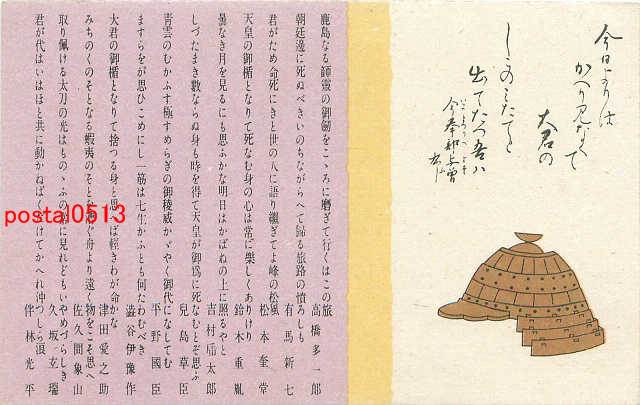 今日よりは
かへり見なくて
大君の
しこのみたてと
出でたつ吾は
今奉部与曽布
鹿島なる韴霊の御劒をこゝろに磨ぎて行くはこの旅 高橋多一郎
朝廷邊に死ぬべきいのちながらへて歸る旅路の憤ろしも 有馬新七
君がため命死にきと世の人に語り繼ぎてよ峰の松風 松本奎堂
天皇の御楯となりて死なむ身の心は常に樂しくありけり 鈴木重胤
曇なき月を見るにも思ふかな明日はかばねの上に照るやと 吉村寅太郎
しづたまき數ならぬ身も時を得て天皇が御爲に死なむとぞ思ふ 兒島草臣
青雲のむかふす極すめらぎの御稜威かゞやく御代になしてむ 平野國臣
ますらをが思ひこめにし一筋は七生かふとも何たわむべき 澁谷伊豫作
大君の御楯となりて捨つる身と思へば輕きわが命かな 津田愛之助
みちのくのそとなる蝦夷のそとを漕ぐ舟より遠く物をこそ思へ 佐久間象山
取り佩ける太刀の光はものゝふの常に見れどもいやめづらしき 久坂玄瑞
君が代はいはほと共に動かねばくだけてかへれ沖つしら浪 伴林光平
postal0513